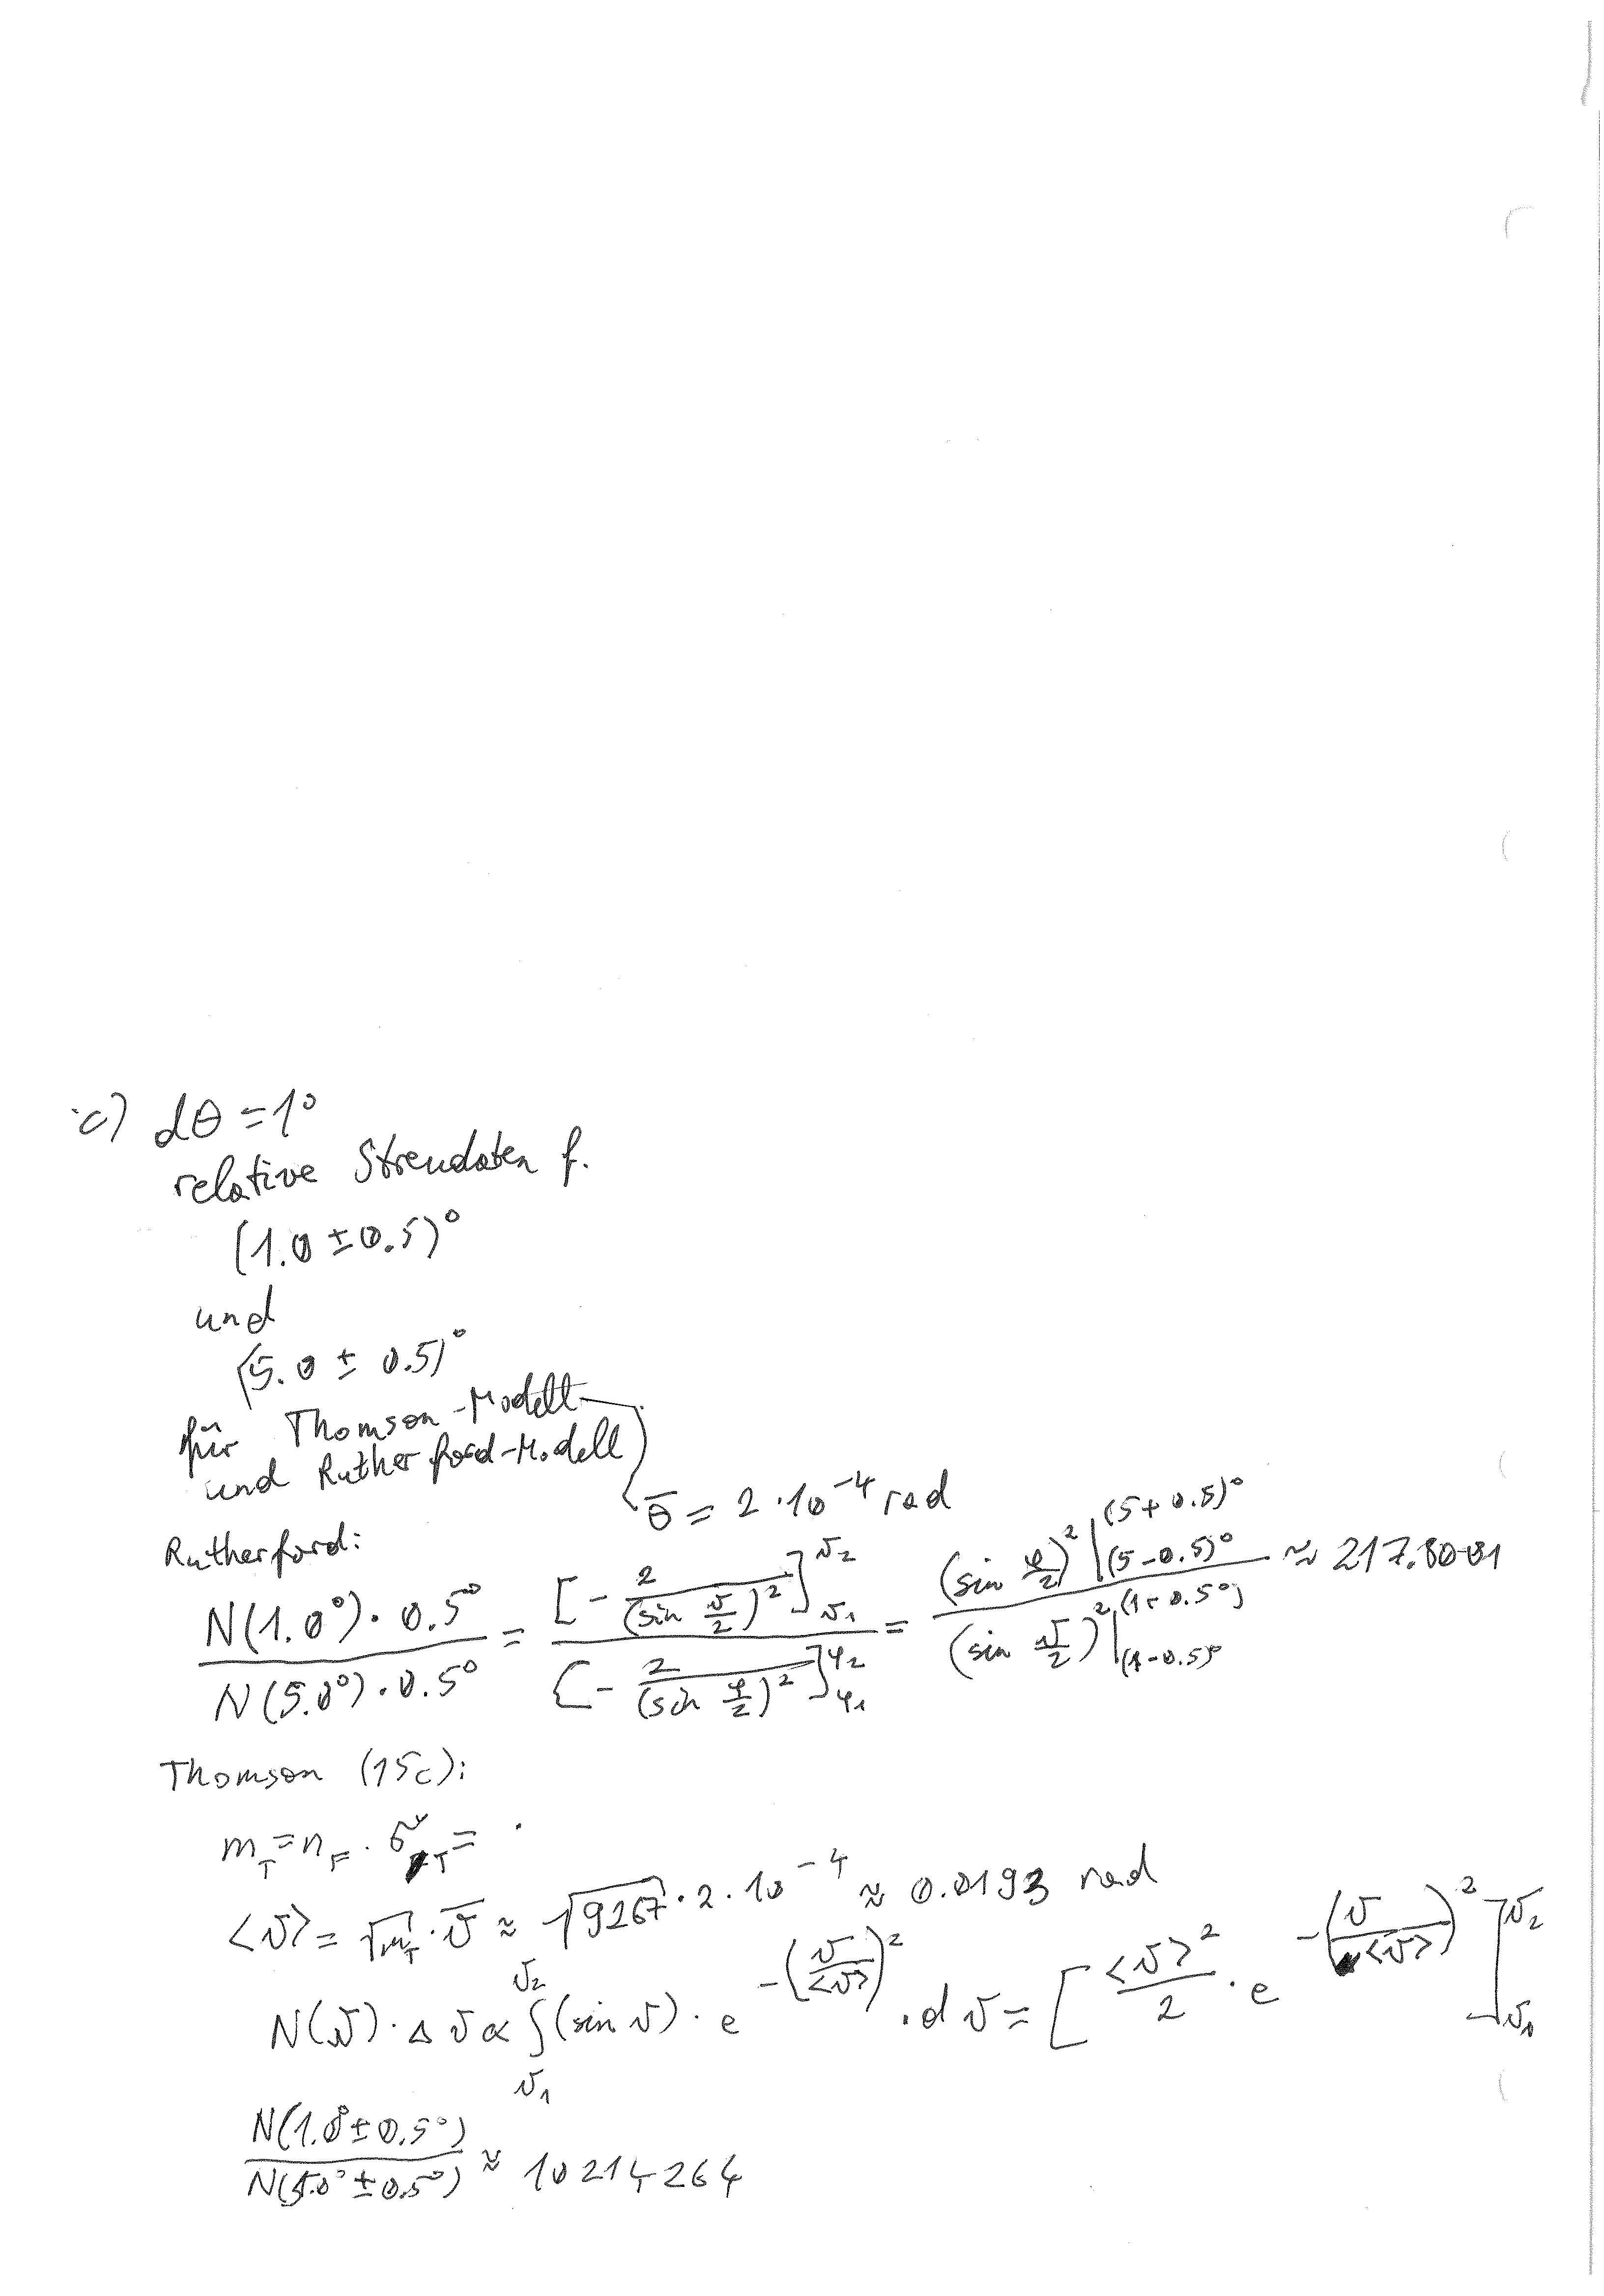 c) dθ = 1°
relative Streudaten f.
(1.0 ± 0.5)°
und
(5.0 ± 0.5)°
für Thomson-Modell
und Rutherford-Modell
θ̅ = 2 · 10⁻⁴ rad
Rutherford:
N(1.0°) · 0.5° / N(5.0°) · 0.5° = [− 2/(sin ϑ/2)²]_ϑ₁^ϑ₂ / [− 2/(sin φ/2)²]_φ₁^φ₂ = (sin φ/2)² |_(5−0.5)°^(5+0.5)° / (sin ϑ/2)² |_(1−0.5)°^(1+0.5°) ≈ 217.8081
Thomson (15c):
m_T = n_F · σ_T =
<ϑ> = √m_T · ϑ̅ ≈ √9267 · 2 · 10⁻⁴ ≈ 0.0193 rad
N(ϑ) · Δϑ ∝ ∫_ϑ₁^ϑ₂ (sin ϑ) · e^−(ϑ/<ϑ>)² · dϑ = [<ϑ>²/2 · e^−(ϑ/<ϑ>)²]_ϑ₁^ϑ₂
N(1.0° ± 0.5°) / N(5.0° ± 0.5°) ≈ 10214264